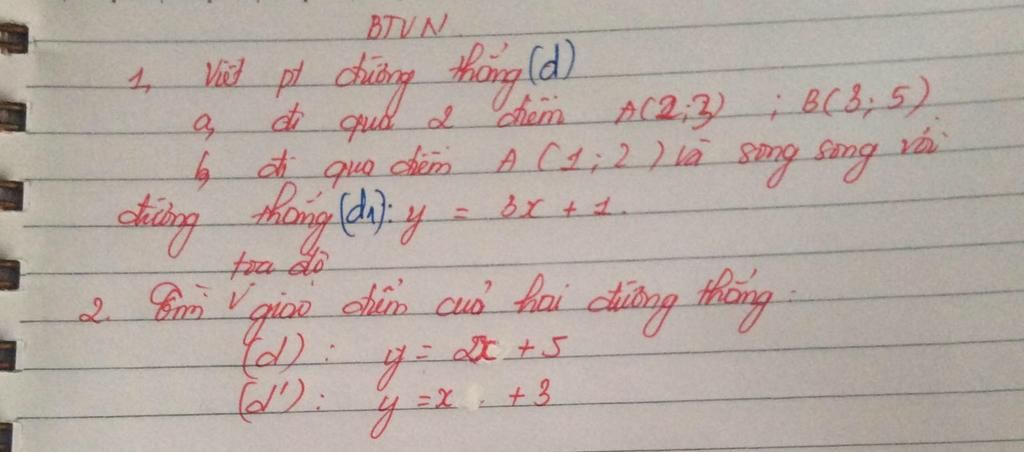 BTVN
1, Viết pt đường thẳng (d)
a, đi qua 2 điểm A(2;3) ; B(3;5)
b, đi qua điểm A (1;2) và song song với
đường thẳng (d1): y = 3x + 1.
toạ độ
2. Tìm v giao điểm của hai đường thẳng:
(d): y = 2x + 5
(d'): y = x + 3